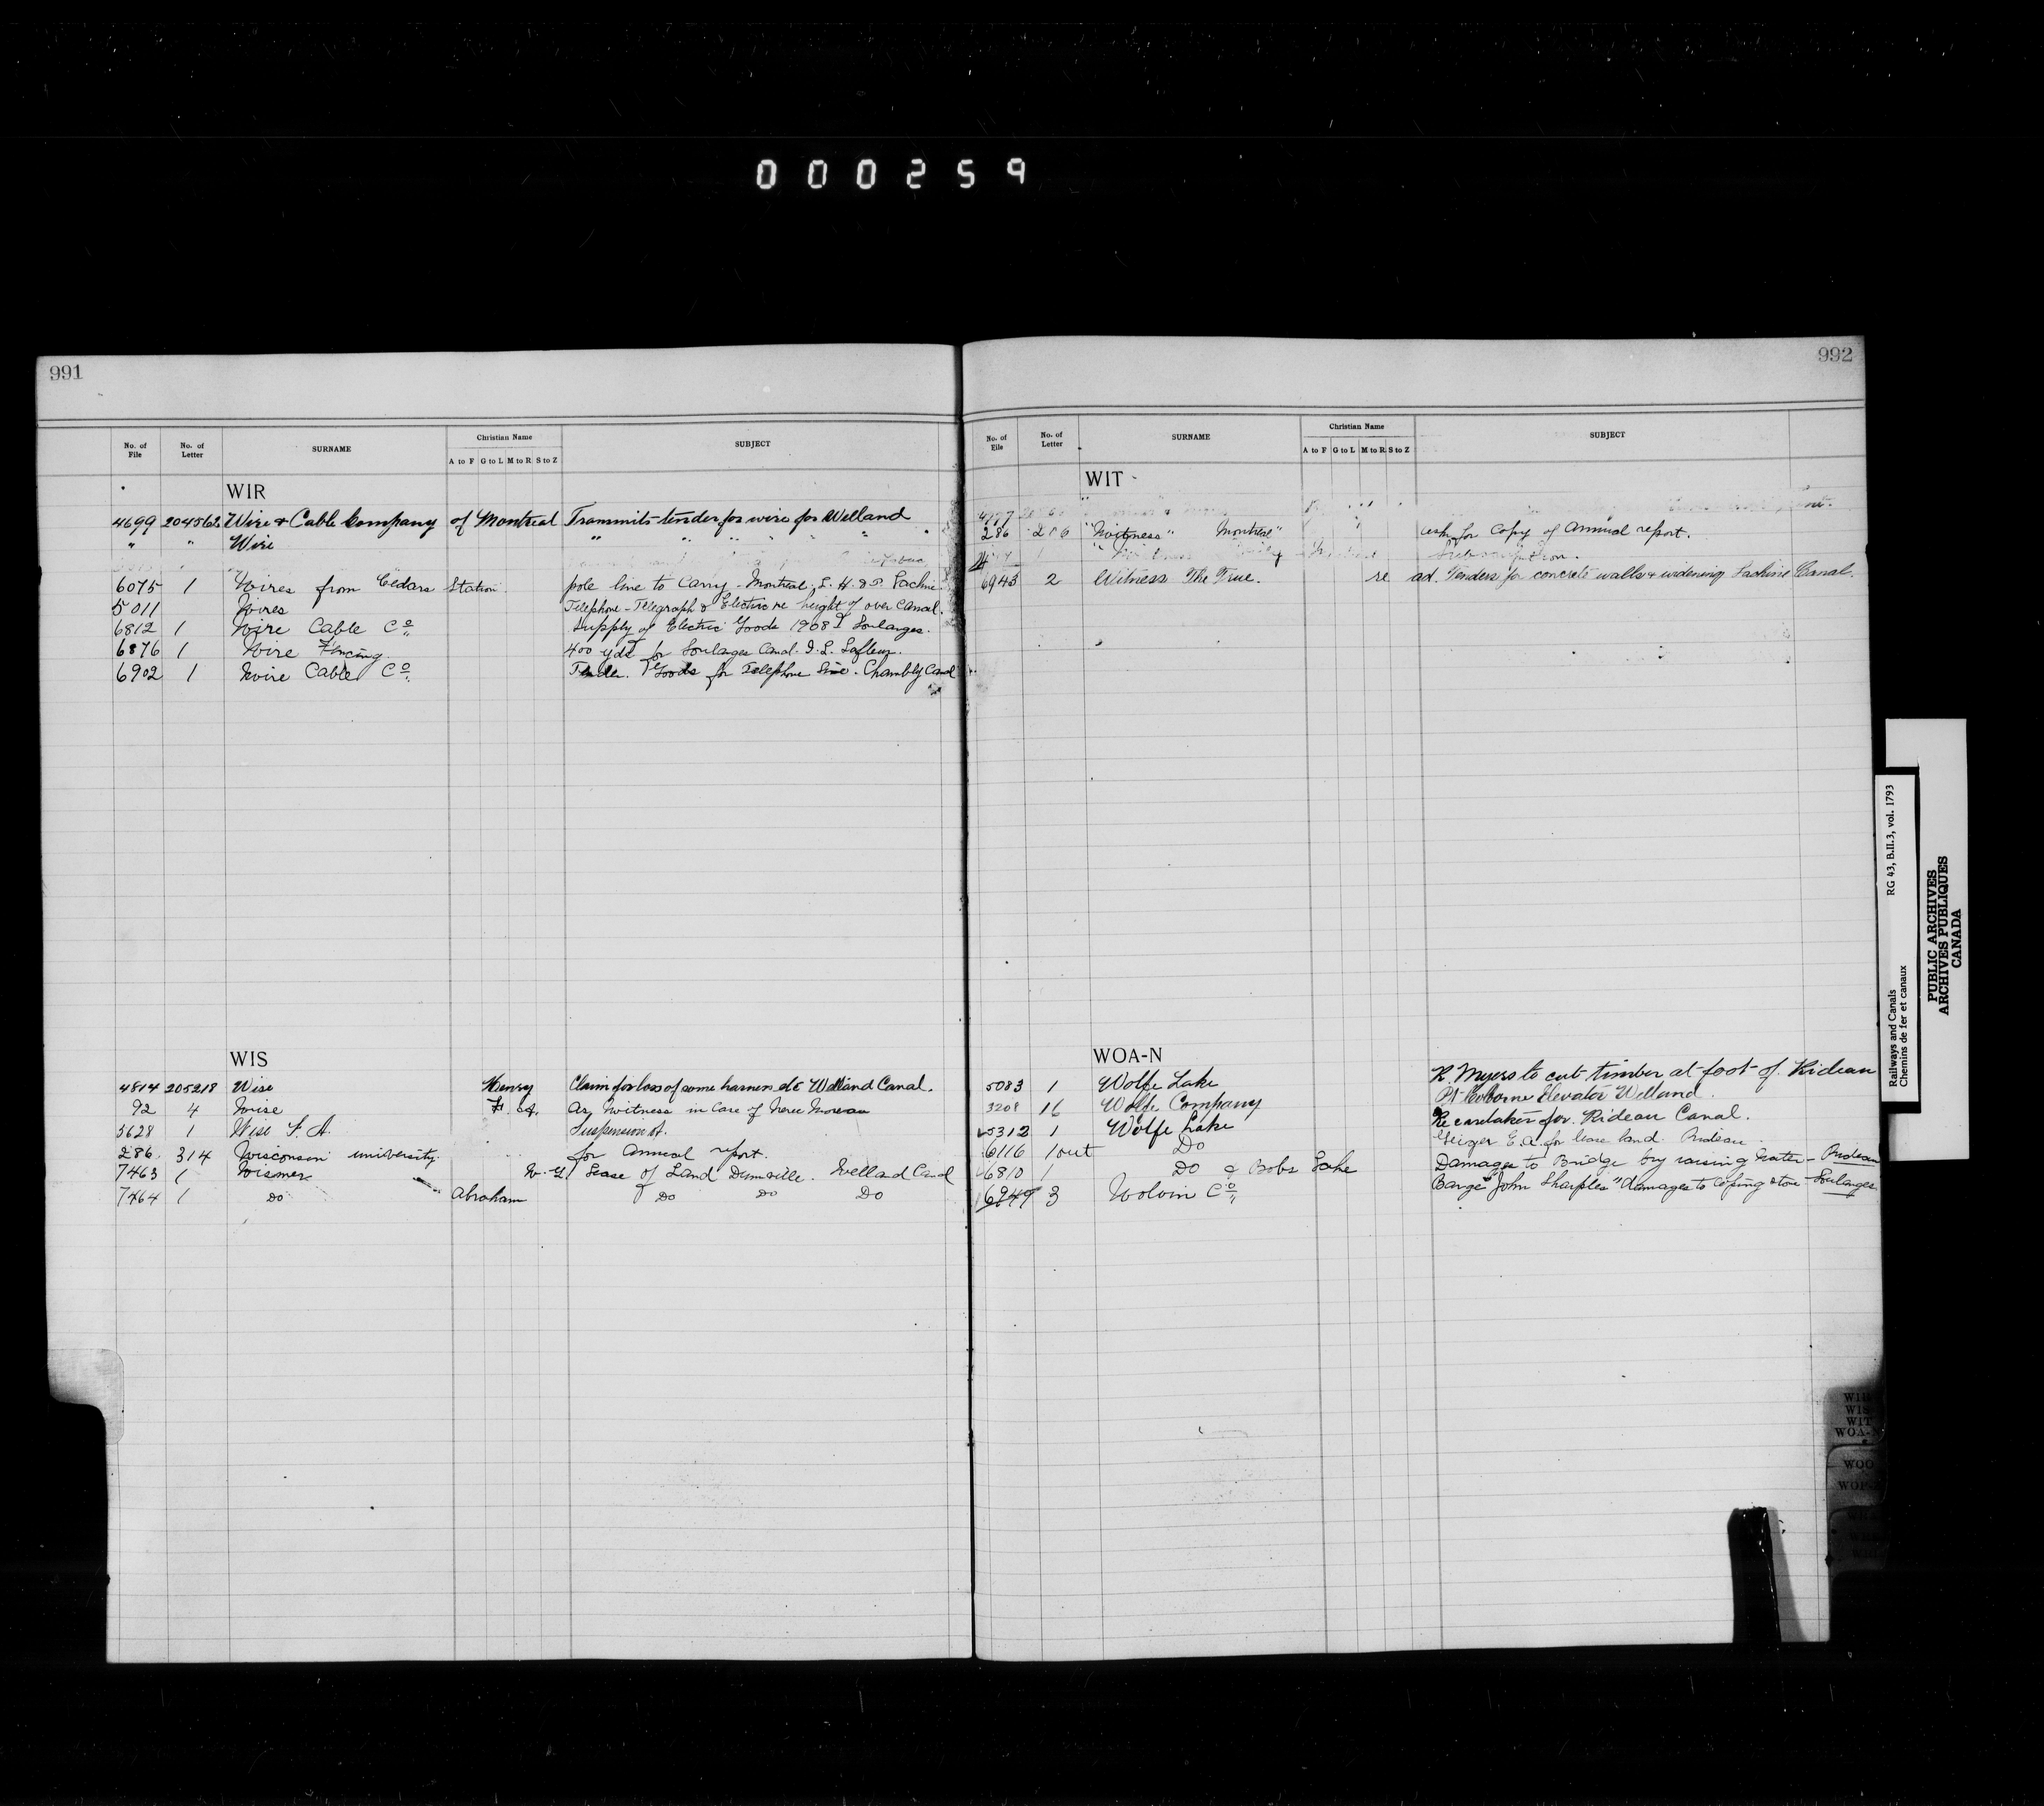 000259
991
No. of File No. of Letter SURNAME Christian Name SUBJECT
A to F G to L M to R S to Z
WIR
4699 204562 Wire & Cable Company of Montreal Transmits tender for wire for Welland
" " Wire " " " " " " "
6075 1 Wires from Cedars Station. pole line to Carry - Montreal, L. H. & P. Lachine
5011 Wires Telephone - Telegraph & Electric re height of over Canal.
6812 1 Wire Cable Co. Supply of Electric Goods 1908 Soulanges.
6876 1 Wire Fencing. 400 yds for Soulanges Canal. Lafleur.
6902 1 Wire Cable Co. Tender. Goods for Telephone Line. Chambly Canal
WIS
4814 205218 Wise Henry Claim for loss of some harness etc Welland Canal.
92 4 Wise F. A. As Witness in Case of Moreau
5628 1 Wise F. A. Suspension of.
286 314 Wisconsin university. for Annual report.
7463 1 Wismer W. G. Lease of Land Dunnville. Welland Canal
7464 1 Do Abraham Do Do Do
992
No. of File No. of Letter SURNAME Christian Name SUBJECT
A to F G to L M to R S to Z
WIT
286 286 "Witness" Montreal" ask for Copy of Annual report.
Subscription.
6943 2 Witness The True. re ad. Tenders for concrete walls & widening Lachine Canal.
WOA-N
5083 1 Wolfe Lake R. Myers to cut timber at foot of. Rideau
3208 16 Wolfe Company Pt Colborne Elevator Welland.
5312 1 Wolfe Lake Re caretaker for. Rideau Canal.
6116 1 out Do Geiger E. A. for lease land. Rideau
6810 1 Do & Bobs Lake Damages to Bridge by raising Water - Rideau
6949 3 Wolvin Co. Barge "John Sharples" damages to Coping stone - Soulanges.
WIR
WIS
WIT
WOA-N
WOO
Railways and Canals RG 43, B.II.3, vol. 1793
Chemins de fer et canaux
PUBLIC ARCHIVES
ARCHIVES PUBLIQUES
CANADA